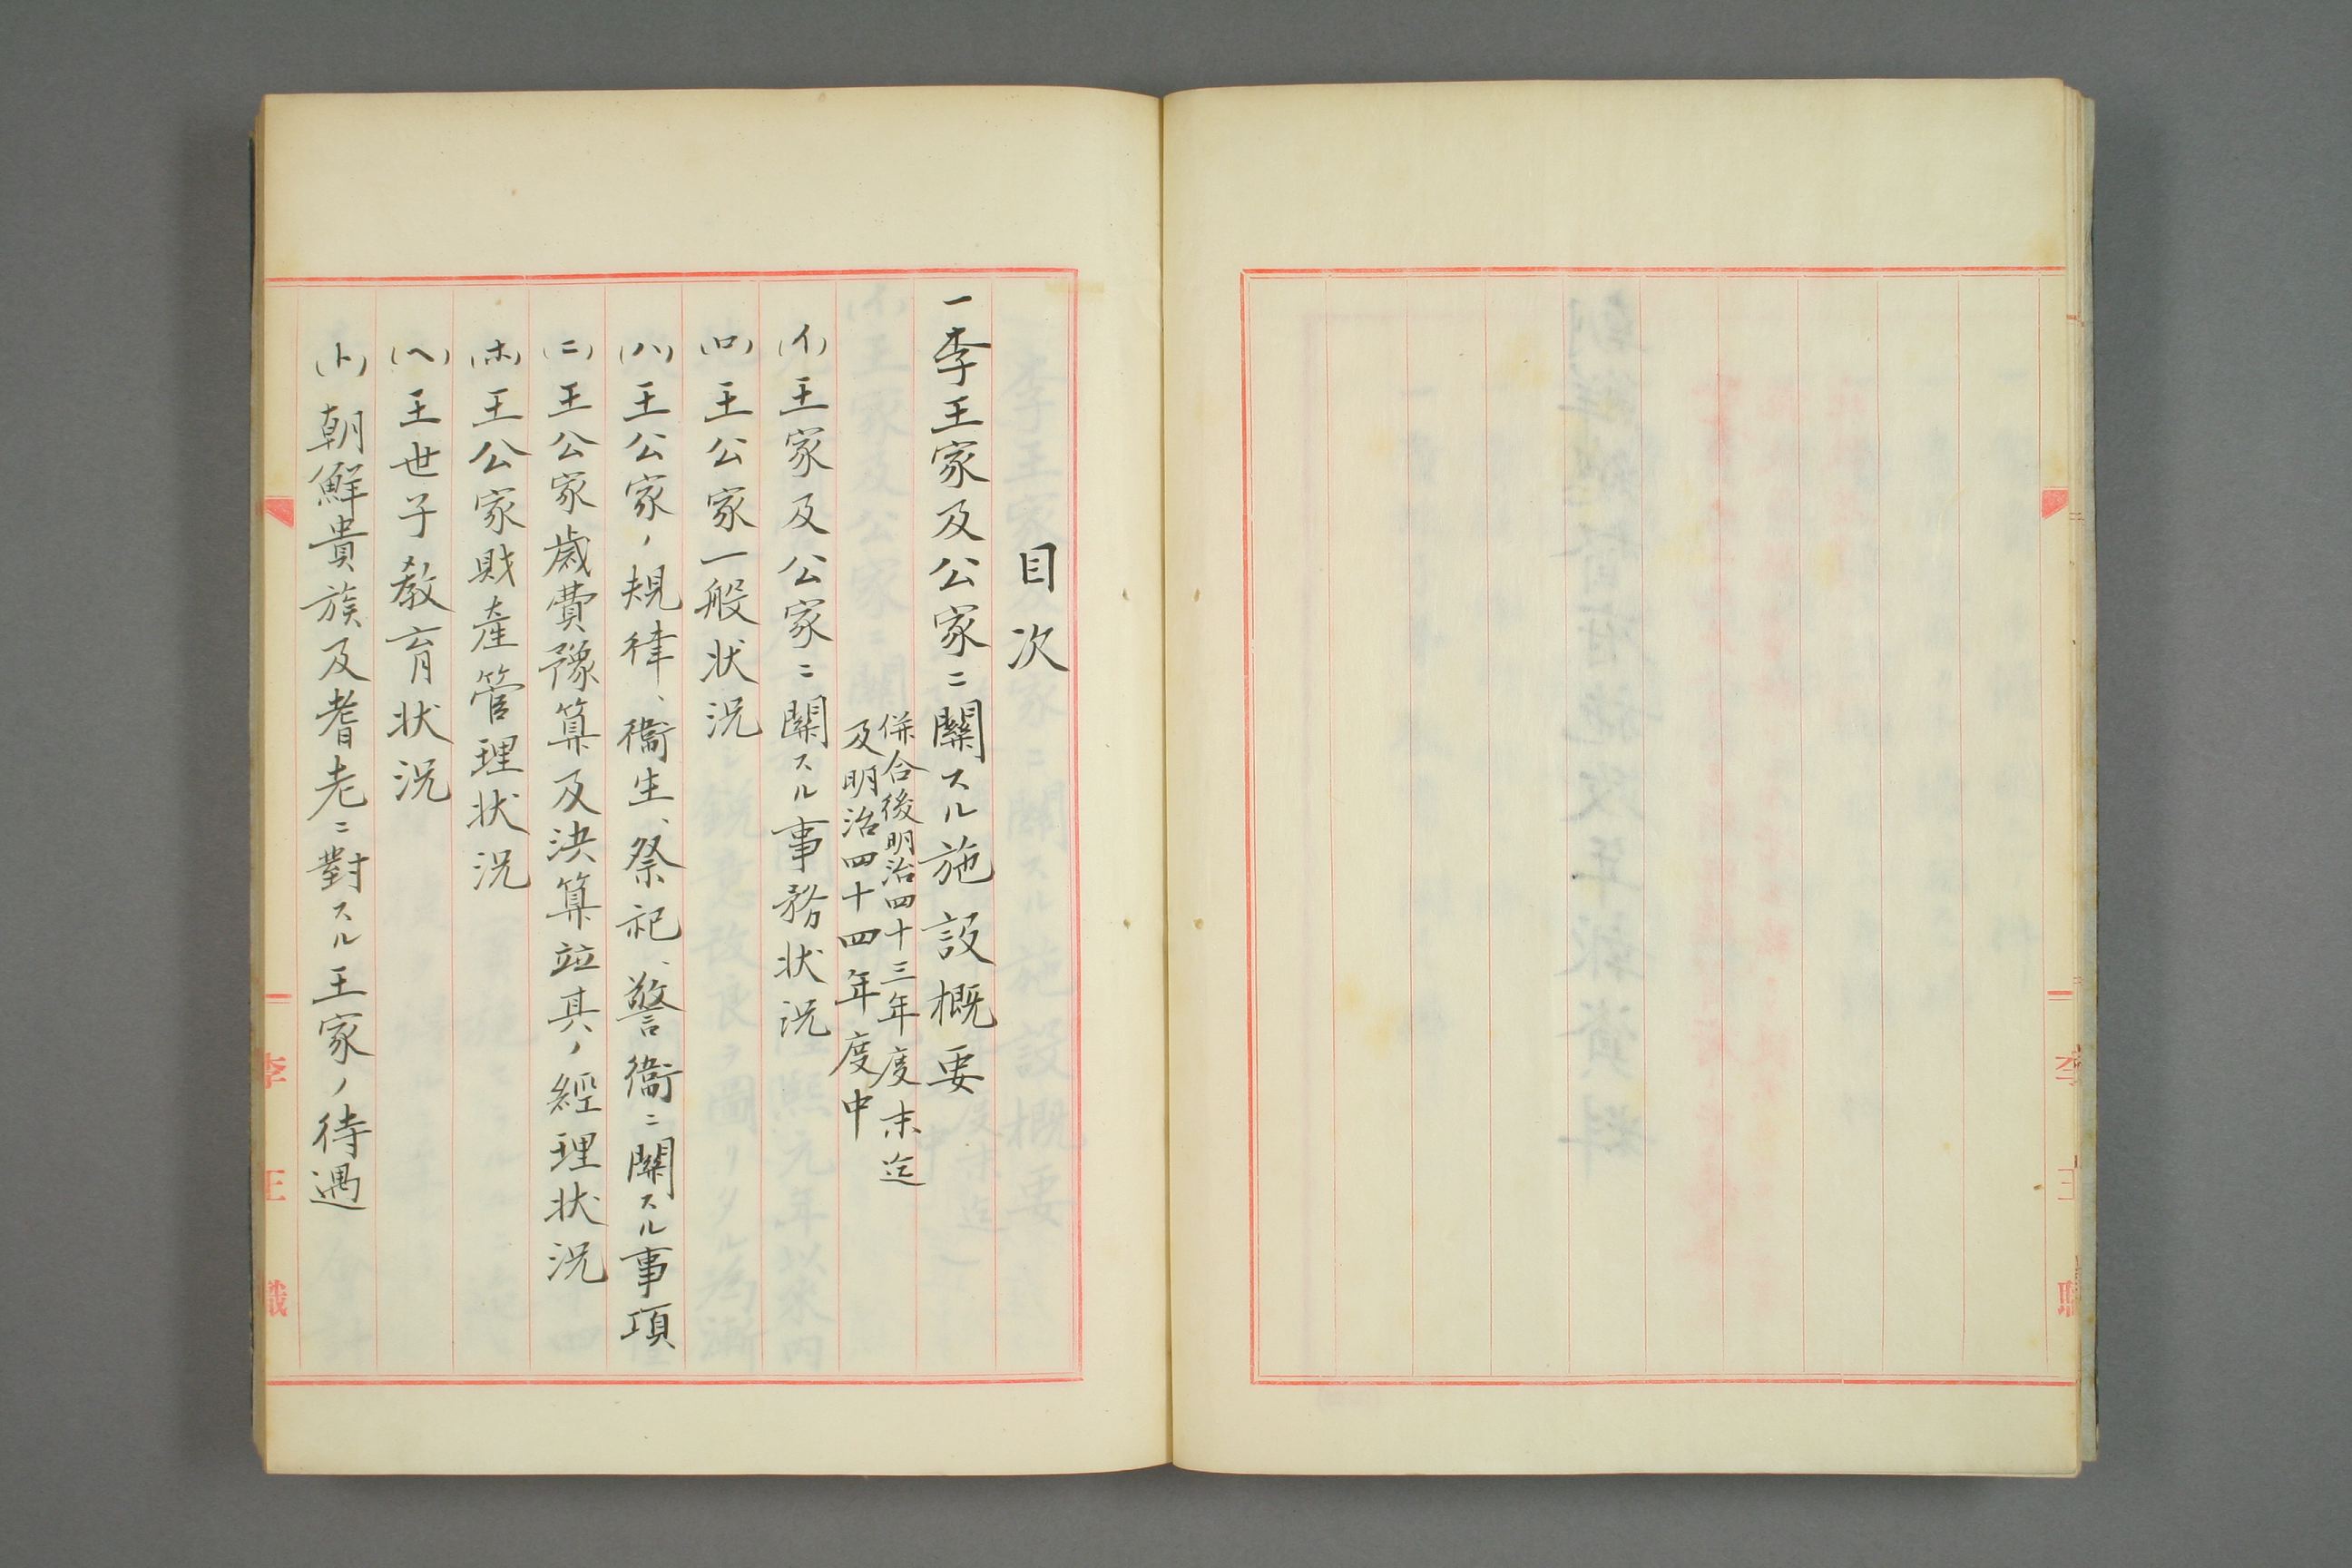 目次
一李王家及公家ニ關スル施設概要
併合後明治四十三年度末迄
及明治四十四年度中
(イ)王家及公家ニ關スル事務状況
(ロ)王公家一般状況
(ハ)王公家ノ規律、衞生、祭祀、警衞ニ關スル事項
(ニ)王公家歳費豫算及決算竝其ノ經理状況
(ホ)王公家財產管理状況
(ヘ)王世子教育状況
(ト)朝鮮貴族及耆老ニ對スル王家ノ待遇
李王職